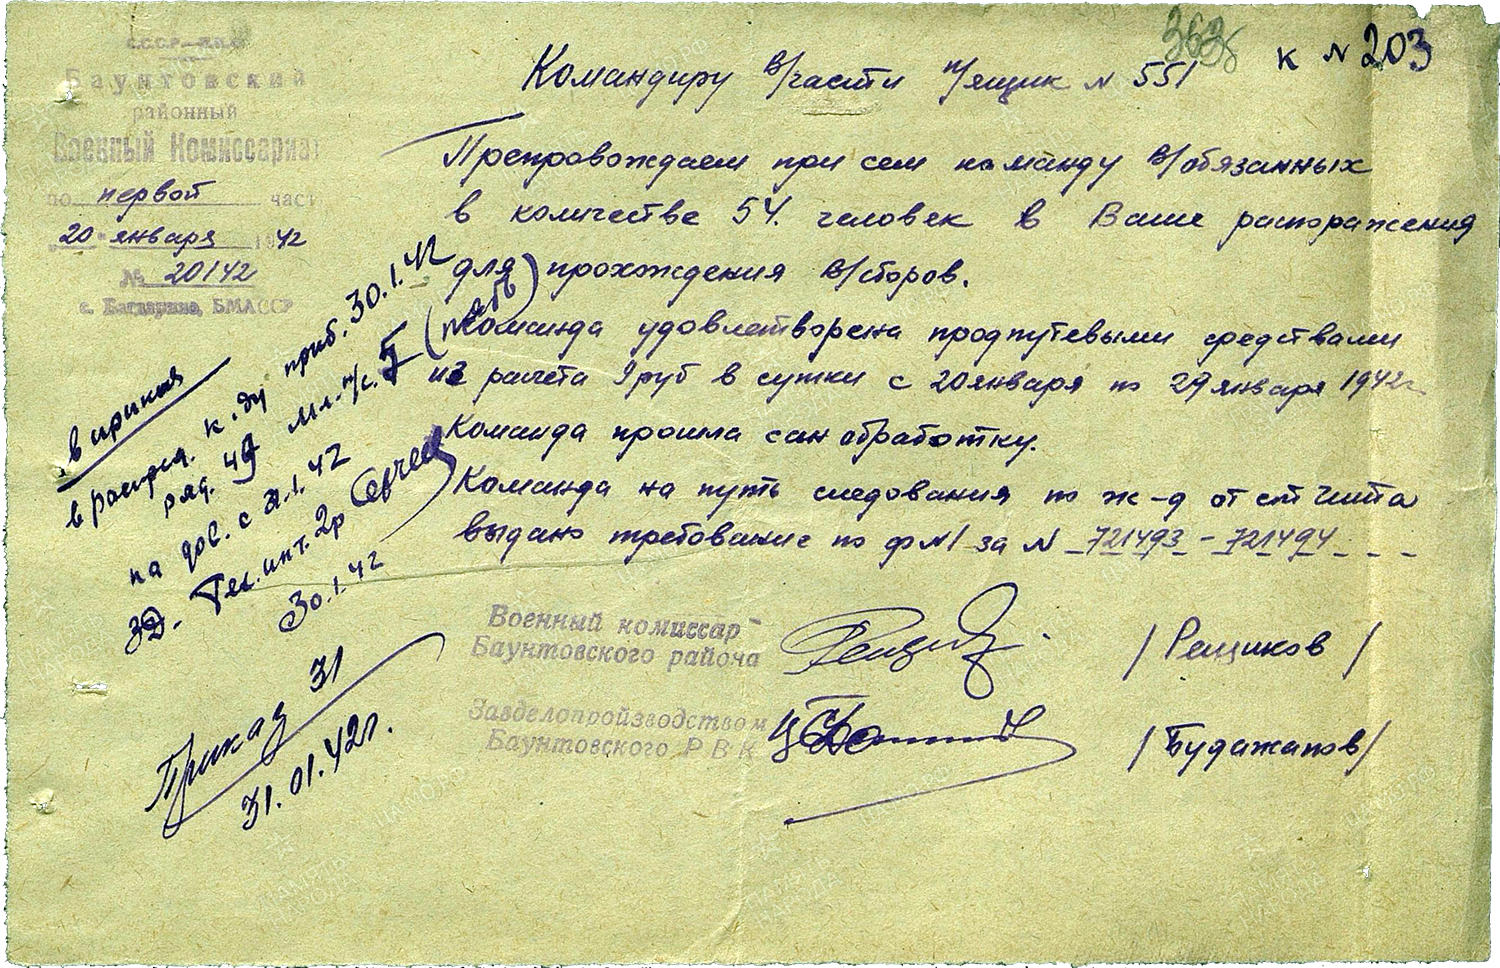 СССР—НКО
Баунтовский
районный
Военный Комиссариат
по первой част
"20" января 1942
№ 20142
с. Багдарино, БМАССР
363
к № 203
Командиру в/части п/ящик № 551
Препровождаем при сем команду в/обязанных
в количестве 54. человек в Ваше распоражения
для прохождения в/сборов.
Команда удовлетворена продпутевыми средствами
из расчета 9 руб в сутки с 20 января по 29 января 1942г.
Команда прошла сан обработку.
Команда на путь следования по ж-д от ст Чита
выдано требование по ф№1 за № 721493 - 721494
в приказ
в распр. к-ду приб. 30.1.42
ряд. 49 мл. н/с. 5 (пять)
на дов. с 31.1.42
Тех. инт. 2р
30.1.42
Приказ 31
31.01.42г.
Военный комиссар
Баунтовского района
/Рещиков/
Завделопроизводством
Баунтовского РВК
/Будажапов/
ПАМЯТЬ НАРОДА